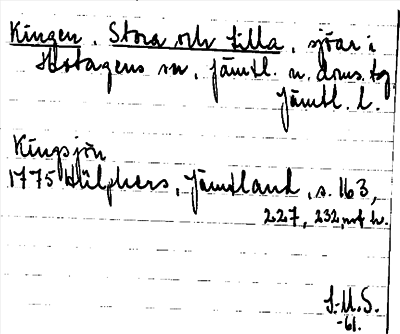 Kingen, Stora och Lilla, sjöar i
Hotagens sn, Jämtl. n. doms. tg
Jämtl. l.
Kingsjön
1775 Hülphers, Jämtland, s. 163,
227, 232, not h.
S.M.S.
-61.